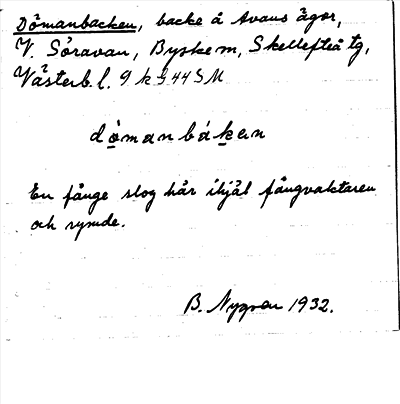 Dömanbacken, backe å Avans ägor,
V. Söravan, Byske sn, Skellefteå tg,
Västerb. l. 9 k S 44 S M
dòmanbáken
En fånge slog här ihjäl fångvaktaren
och rymde.
B. Nygren 1932.